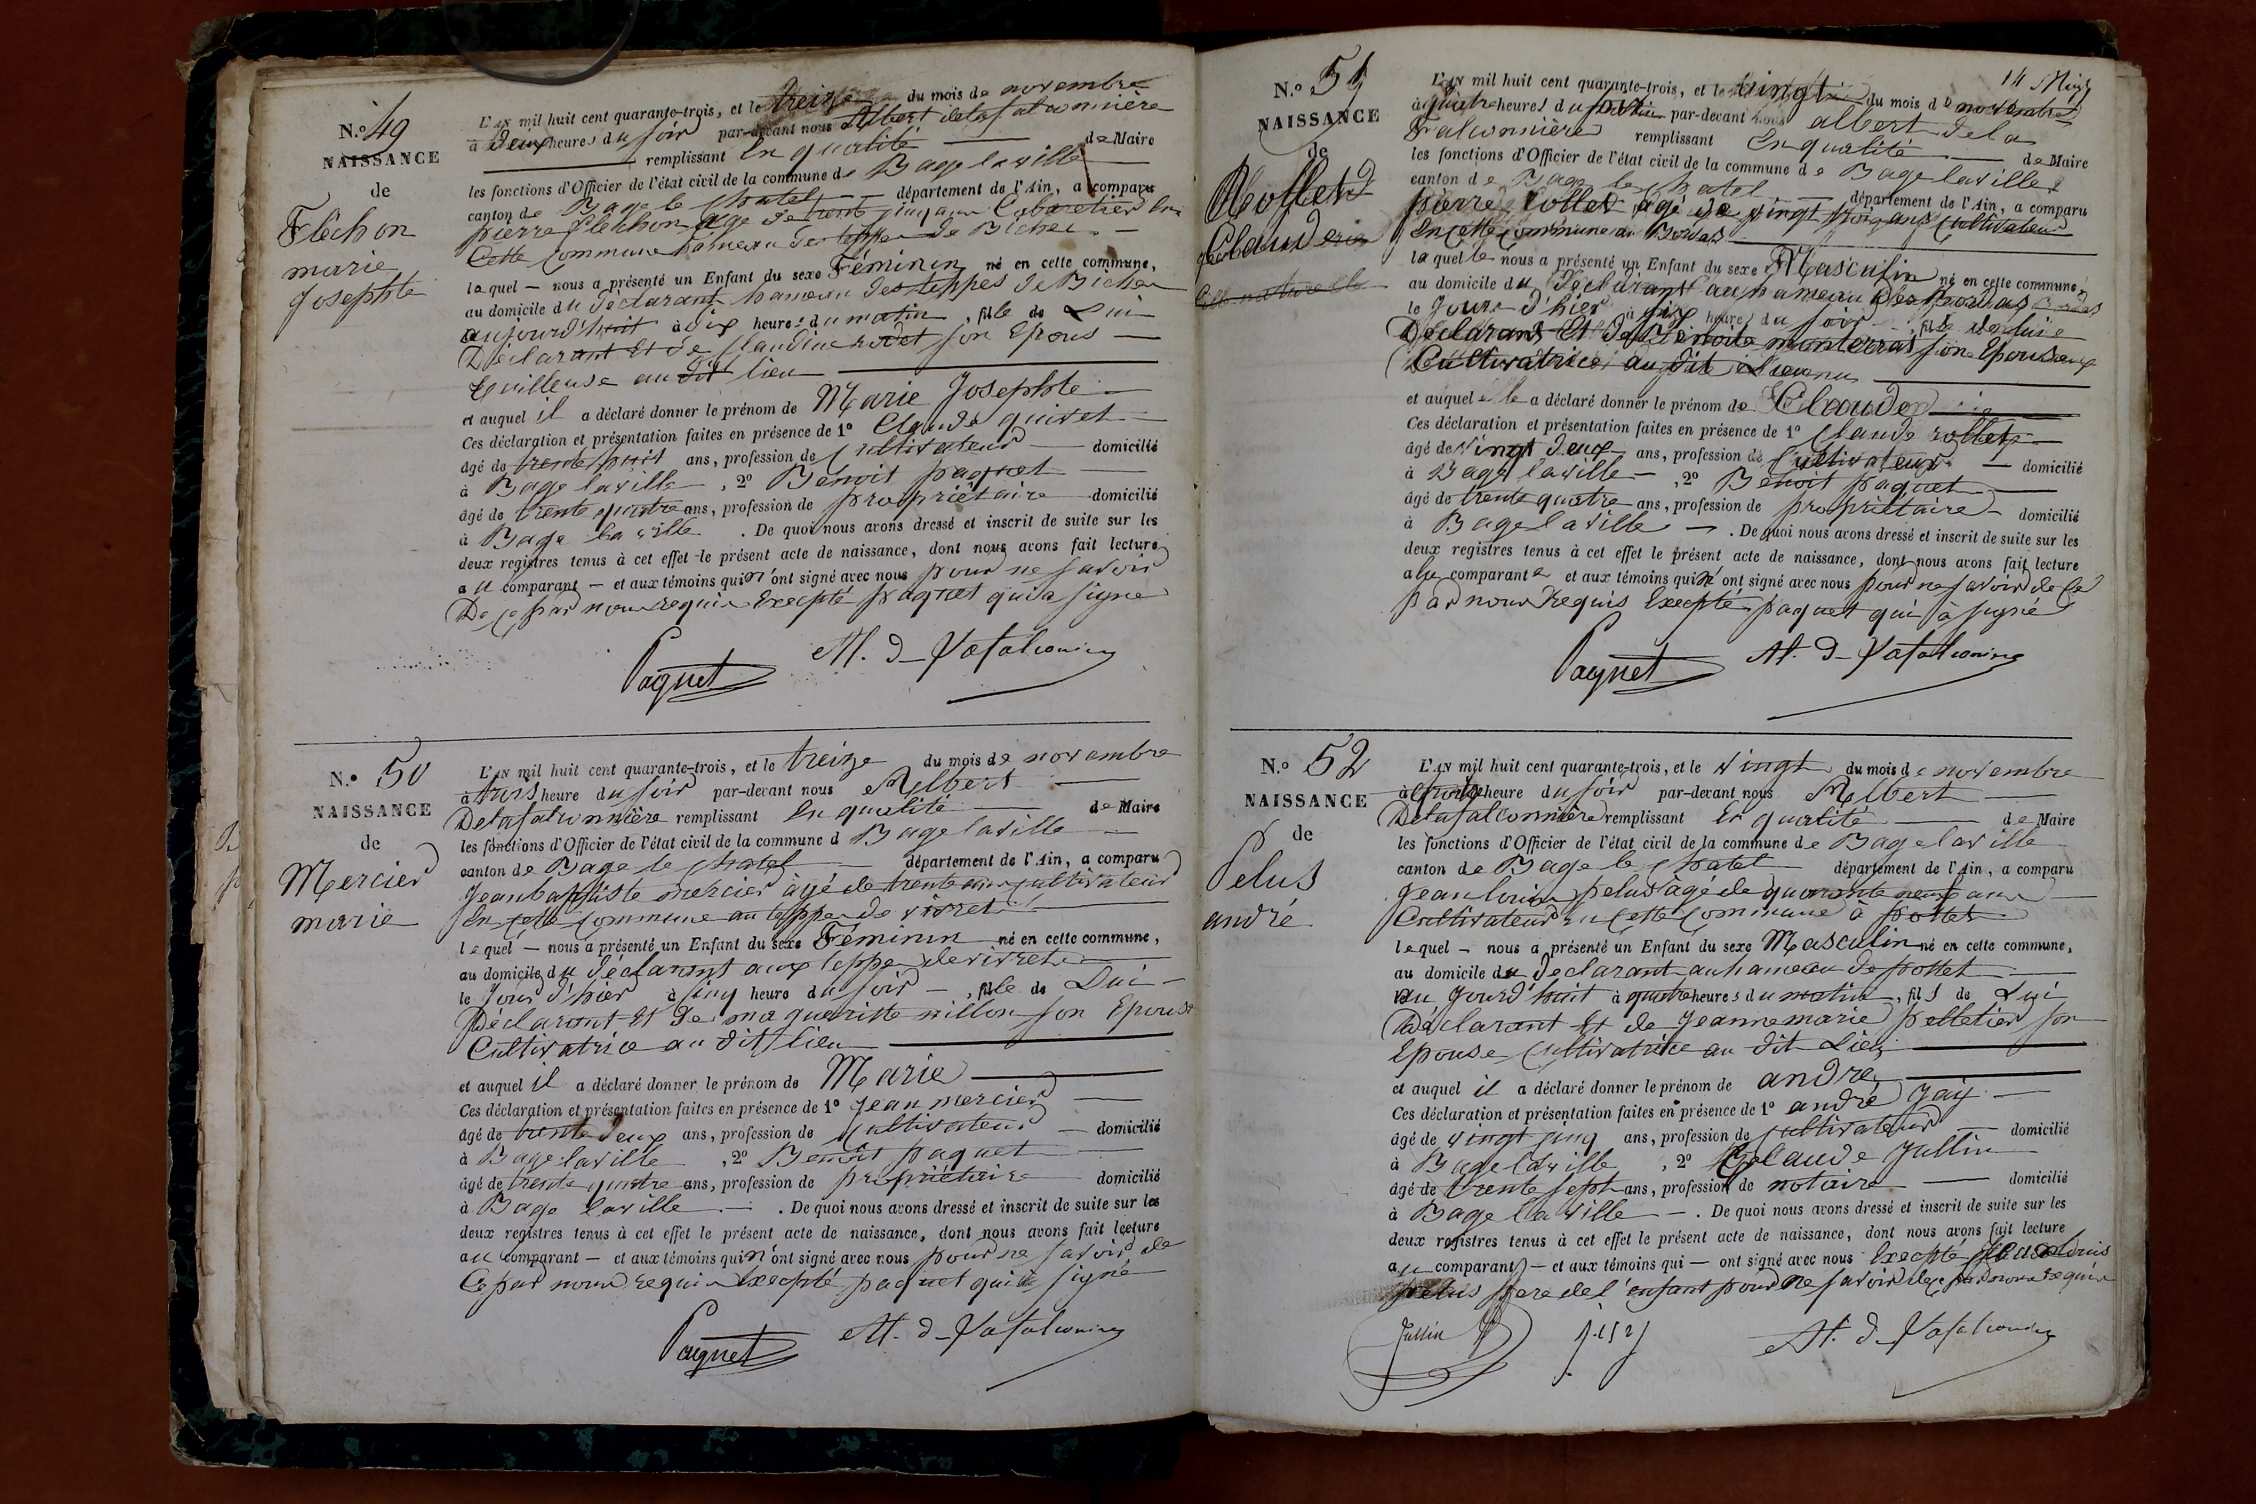 N.° 49
NAISSANCE
de
Fléchon
marie
Josephte
L'AN mil huit cent quarante-trois, et le treize du mois de novembre
à deux heures du soir par-devant nous Albert delafalconnière
remplissant en qualité de Maire
les fonctions d'Officier de l'état civil de la commune de Bage laville
canton de Bage le chatel département de l'Ain, a comparu
pierre fléchon agé de trente cinq ans Cabaretier en
Cette Commune hameau des teppes de Bichex
lequel — nous a présenté un Enfant du sexe Féminin né en cette commune,
au domicile du déclarant hameau des teppes de Bichex
aujourd'huit à dix heures du matin, fille de Lui
Déclarant Et de Claudine rodet son Epous
tailleuse au dit lieu
et auquel il a déclaré donner le prénom de Marie Josephte
Ces déclaration et présentation faites en présence de 1° Claude guivet
âgé de trente huit ans, profession de Cultivateur domicilié
à Bage laville, 2° Benoit paquet
âgé de trente quatre ans, profession de propriétaire domicilié
à Bage la ville. De quoi nous avons dressé et inscrit de suite sur les
deux registres tenus à cet effet le présent acte de naissance, dont nous avons fait lecture
au comparant — et aux témoins qui n'ont signé avec nous pour ne savoir
De ce par nous requis Excepté paquet qui a signé
Paquet Al. d Lafalconnière
N.° 50
NAISSANCE
de
Mercier
marie
L'AN mil huit cent quarante-trois, et le treize du mois de novembre
à trois heure du soir par-devant nous Albert
Delafalconnière remplissant En qualité de Maire
les fonctions d'Officier de l'état civil de la commune d Bage laville
canton de Bage le chatel département de l'Ain, a comparu
Jeanbaptiste mercier âgé de trente ans cultivateur
En cette Commune au teppe de vivret
lequel — nous a présenté un Enfant du sexe Féminin né en cette commune,
au domicile du déclarant aux teppe de vivret
le Jour d'hier à cinq heure du soir —, fille de Lui —
Déclarant Et de marguerite nillon son Epouse
Cultivatrice au dit lieu
et auquel il a déclaré donner le prénom de Marie
Ces déclaration et présentation faites en présence de 1° Jean mercier
âgé de trente deux ans, profession de Cultivateur domicilié
à Bage laville, 2° Benoit paquet
âgé de trente quatre ans, profession de propriétaire domicilié
à Bage laville —. De quoi nous avons dressé et inscrit de suite sur les
deux registres tenus à cet effet le présent acte de naissance, dont nous avons fait lecture
au comparant — et aux témoins qui n'ont signé avec nous pour ne savoir de
Ce par nous requis Excepté paquet qui a signé
Paquet Al. d Lafalconnière
14
N.° 51
NAISSANCE
de
Rollet
Claude
L'AN mil huit cent quarante-trois, et le vingt du mois de novembre
à quatre heures du soir par-devant nous albert dela
Falconnière remplissant En qualité de Maire
les fonctions d'Officier de l'état civil de la commune de Bage laville
canton de Bage le chatel département de l'Ain, a comparu
pierre rollet agé de vingt trois ans Cultivateur
En cette Commune au Bordas
lequel nous a présenté un Enfant du sexe Masculin né en cette commune,
au domicile du Déclarant au hameau des Bordas
le Jour d'hier à six heures du soir, fils de lui
Déclarant Et de Benoite monterrat son Epouse
Cultivatrice au dit Lieu
et auquel a déclaré donner le prénom de Claude
Ces déclaration et présentation faites en présence de 1° Claude rollet
âgé de vingt deux ans, profession de Cultivateur domicilié
à Bage laville —, 2° Benoit paquet
âgé de trente quatre ans, profession de propriétaire domicilié
à Bage laville —. De quoi nous avons dressé et inscrit de suite sur les
deux registres tenus à cet effet le présent acte de naissance, dont nous avons fait lecture
au comparant et aux témoins qui n'ont signé avec nous pour ne savoir de Ce
par nous requis Excepté paquet qui à signé
Paquet Al. d Lafalconnière
N.° 52
NAISSANCE
de
Pelus
andré
L'AN mil huit cent quarante-trois, et le vingt du mois de novembre
à quatre heure du soir par-devant nous Albert
Delafalconnière remplissant En qualité de Maire
les fonctions d'Officier de l'état civil de la commune de Bage laville
canton de Bage le chatel département de l'Ain, a comparu
Jean louis pelus âgé de quarante neuf ans
Cultivateur en Cette Commune à pottet
lequel — nous a présenté un Enfant du sexe Masculin né en cette commune,
au domicile du Declarant au hameau de pottet
au Jourd'huit à quatre heures du matin, fils de Lui
Déclarant Et de Jeanne marie pelletier son
Epouse Cultivatrice au dit Lieu
et auquel il a déclaré donner le prénom de andré
Ces déclaration et présentation faites en présence de 1° andré Jay
âgé de vingt cinq ans, profession de cultivateur domicilié
à Bage laville, 2° Claude Jullin
âgé de trente sept ans, profession de notaire domicilié
à Bage la ville —. De quoi nous avons dressé et inscrit de suite sur les
deux registres tenus à cet effet le présent acte de naissance, dont nous avons fait lecture
au comparant — et aux témoins qui — ont signé avec nous Excepté Jean Louis
pelus pere de l'enfant pour ne savoir de ce par nous requis
Jullin Al. d Lafalconnière